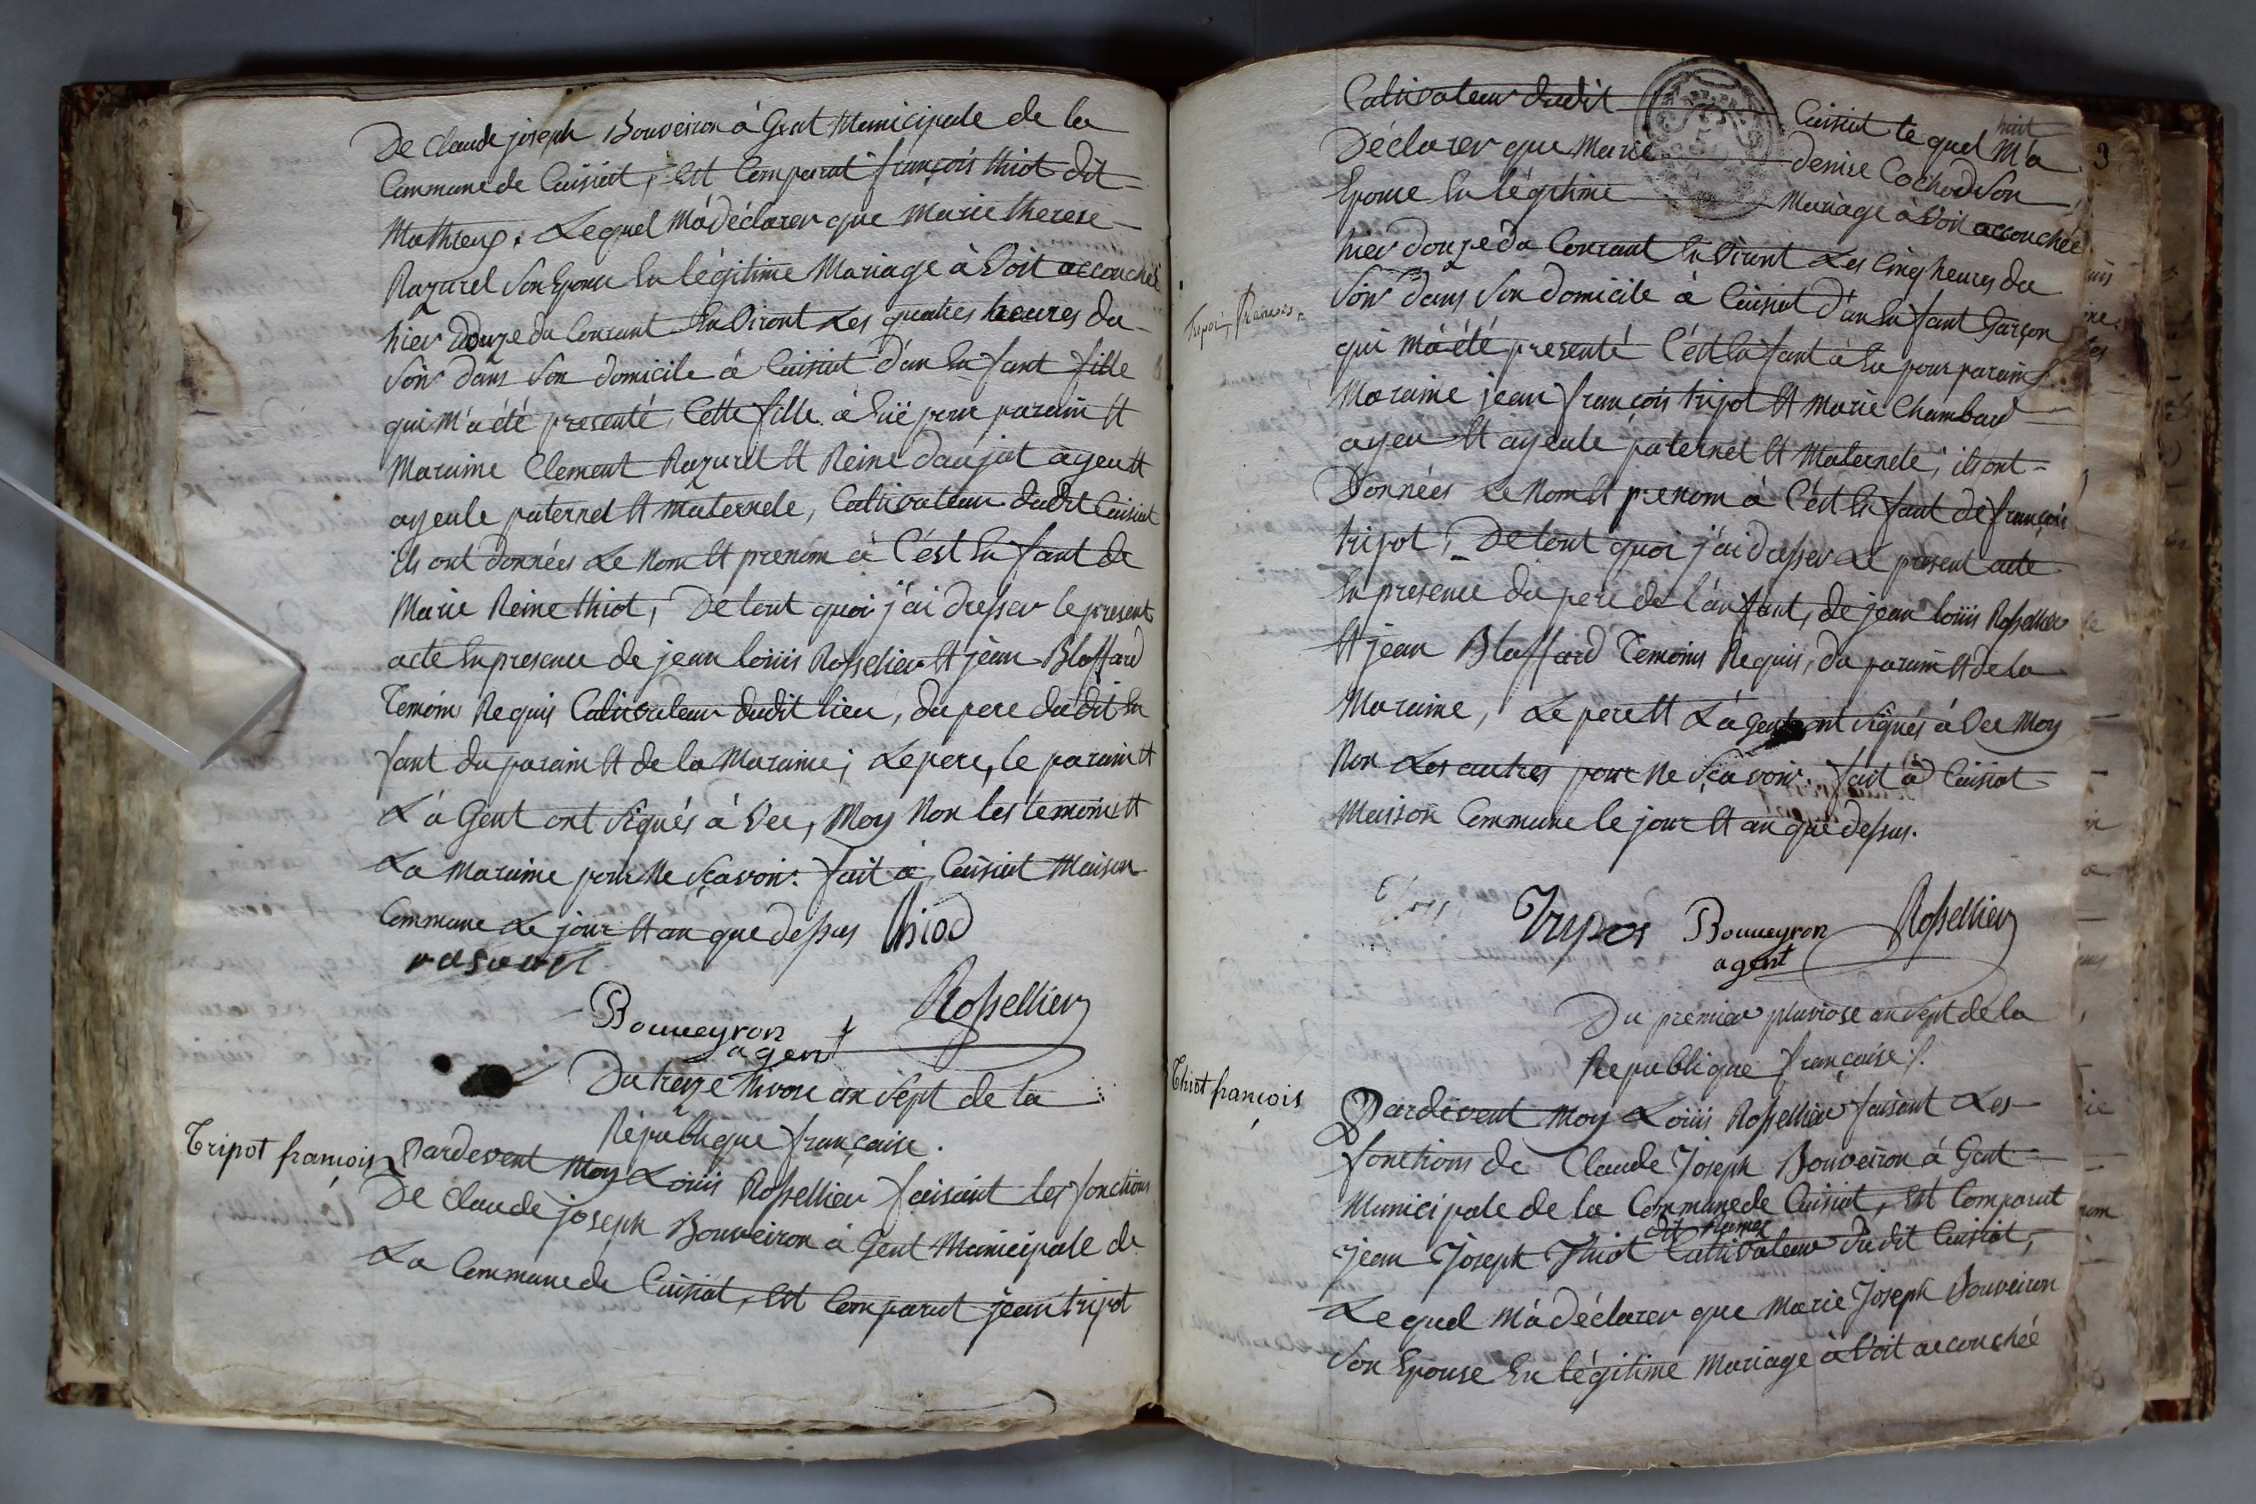 De Claude joseph Bouveiron à Gent Municipale de la
Commune de Cuisiat, Est Comparut françois thiot dit
Mathieux. Lequel M'a déclarer que Marie therese
Razurel Son Epouse En légitime Mariage à Voit accouchée
hier Douze du Courant En Viront Les quatres heures du
Soir dans Son domicile à Cuisiat d'un En fant fille
qui M'a été presenté, Cette fille à Eüe pour parain Et
Maraine Clement Razurel Et Reine daujat ayeu Et
ayeule paternel Et Maternele, Cultivateur dudit Cuisiat
ils ont données Le Nom Et prenom à C'est En fant de
Marie Reine thiot, De tout quoi j'ai dresser le present
acte En presence de jean loüis Rossellier Et jean Blaffard
Temoins Requis Cultivateur dudit lieu, du pere dudit En
fant du parain Et de la Maraine; Le pere, le parain Et
L'a Gent ont Signés à Vec, Moy Non les temoins Et
La Maraine pour Ne Sçavoir. fait à Cuisiat Maison
Commune Le jour Et an que dessus thiod
rasurel
Rossellier
Bouueyron
agent
Du treize Nivose an Sept de la
République françaice.
Tripot françois
Pardevent Moy Loüis Rossellier faisant les fonctions
De Claude joseph Bouveiron à Gent Municipale de
La Commune de Cuisiat, Est Comparut jean tripot
Cultivateur dudit Cuisiat le quel M'a
Déclarer que Marie denise Cochod Son
Epouse En légitime Mariage à Voit accouchée
hier douze du Courant En Viront Les Cinq heures du
Soir dans Son domicile à Cuisiat d'un En fant Garçon
Tripot, françois
qui M'a été presenté C'est En fant à Eu pour parain
Maraine jean françois tripot Et Marie Chambard
ayeu Et ayeule paternel Et Maternele; ils ont
Données Le Nom Et prenom à C'est En fant de françois
tripot, De tout quoi j'ai dresser Le present acte
En presence du pere de l'anfant, de jean loüis Rossellier
Et jean Blaffard Temoins Requis, du parain Et de la
Maraine, Le pere Et L'a Gent ont Signés à Vec Moy
Non Les autres pour Ne Sçavoir. fait à Cuisiat
Maison Commune le jour Et an que dessus.
Tripot Bouueyron Rossellier
agent
Du premier pluviose an Sept de la
République françaice.
Thiot françois
Pardevent Moy Loüis Rossellier faisant Les
fonctions de Claude Joseph Bouveiron à Gent
Municipale de la Commune de Cuisiat, Est Comparut
jean Joseph Thiot Cultivateur dudit Cuisiat,
Le quel M'a déclarer que Marie Joseph Bouveiron
Son Epouse En légitime Mariage à Voit accouchée